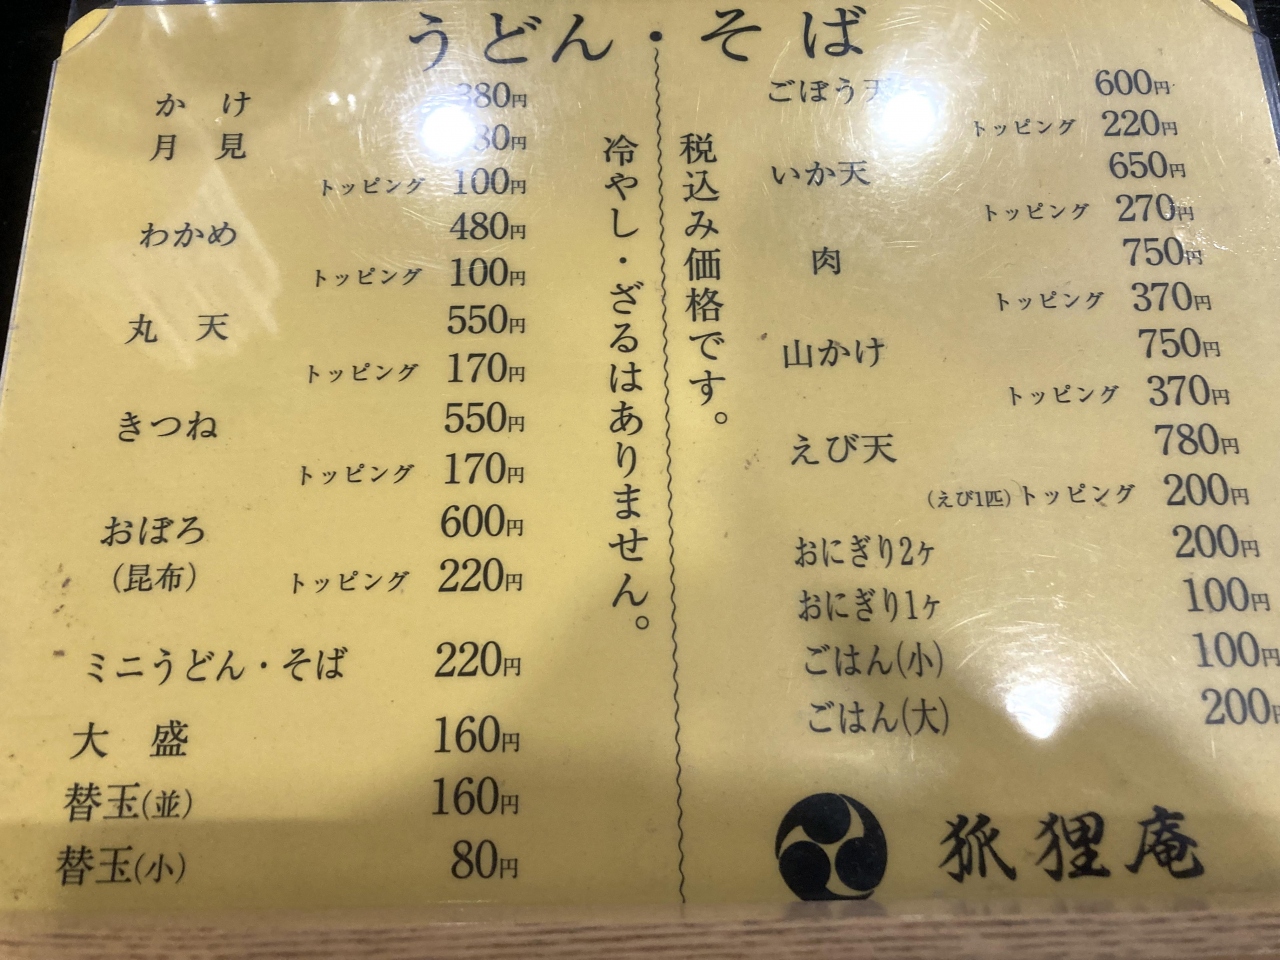 うどん・そば
かけ 380円
月見 80円
トッピング 100円
わかめ 480円
トッピング 100円
丸天 550円
トッピング 170円
きつね 550円
トッピング 170円
おぼろ 600円
(昆布) トッピング 220円
ミニうどん・そば 220円
大盛 160円
替玉(並) 160円
替玉(小) 80円
税込み価格です。
冷やし・ざるはありません。
ごぼう天 600円
トッピング 220円
いか天 650円
トッピング 270円
肉 750円
トッピング 370円
山かけ 750円
トッピング 370円
えび天 780円
(えび1匹)トッピング 200円
おにぎり2ヶ 200円
おにぎり1ヶ 100円
ごはん(小) 100円
ごはん(大) 200円
狐狸庵